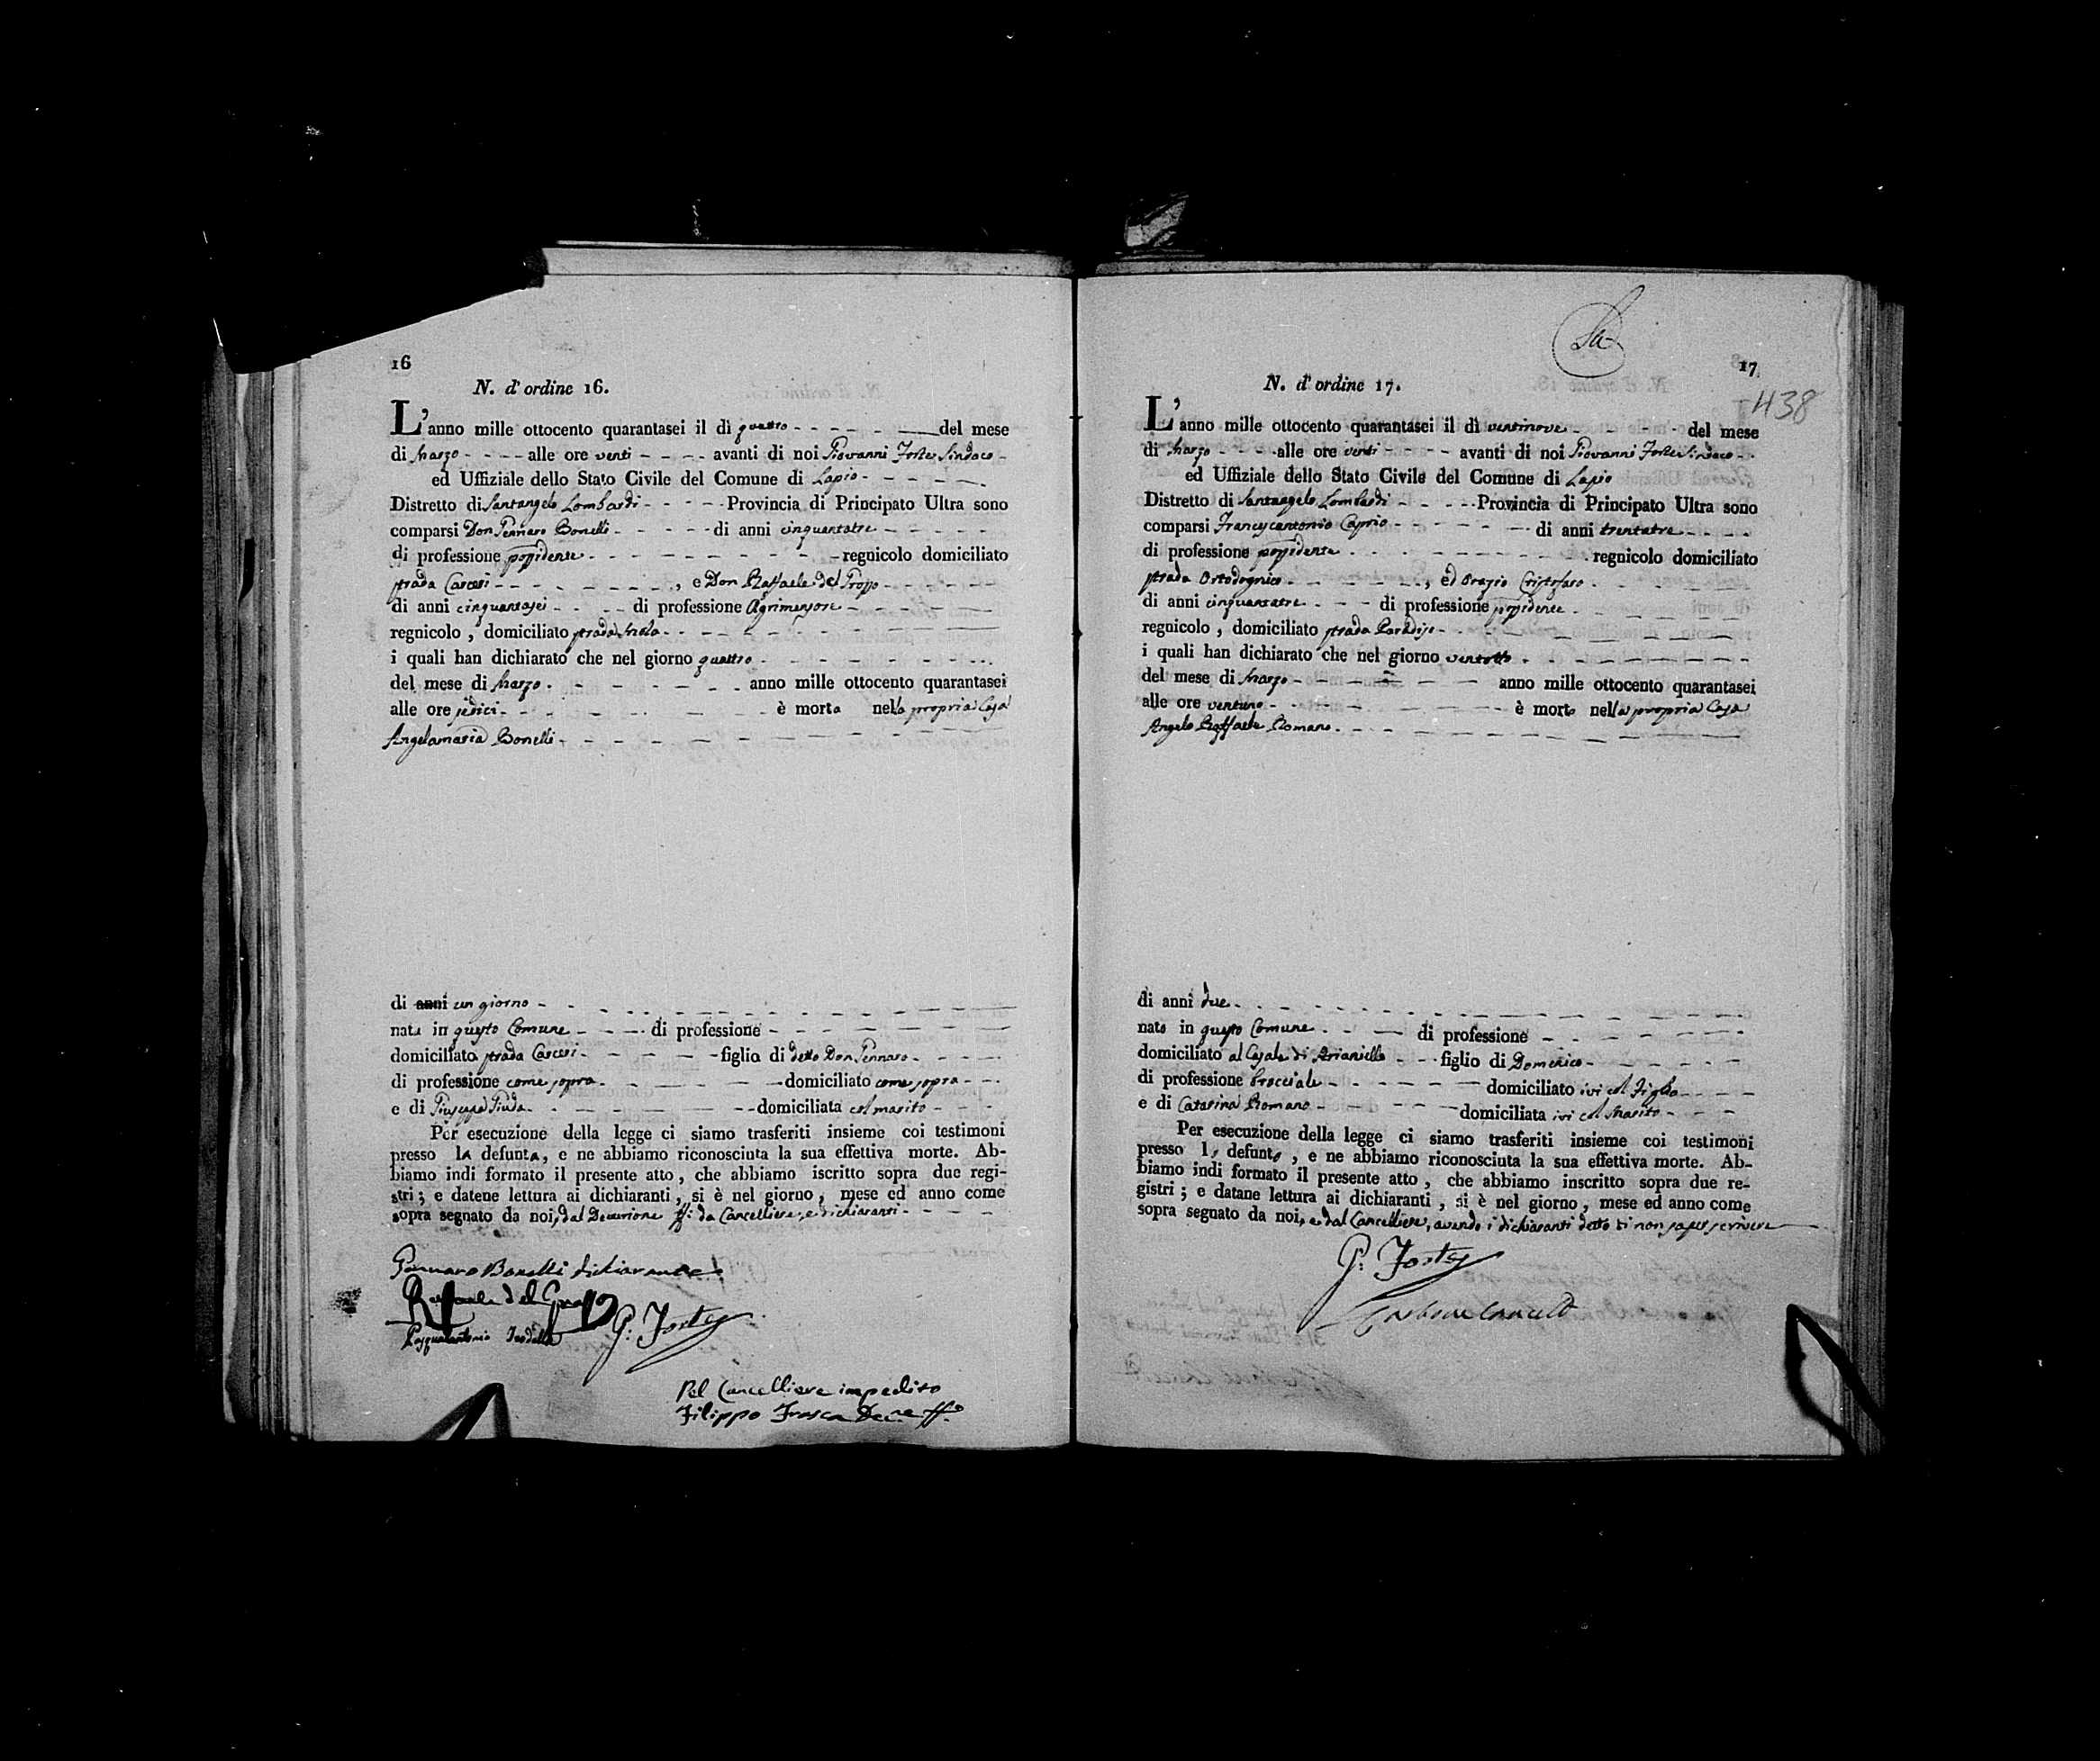 16
N. d'ordine 16.
L'anno mille ottocento quarantasei il dì quattro del mese
di Marzo alle ore venti avanti di noi Giovanni Forte Sindaco
ed Uffiziale dello Stato Civile del Comune di Lapio
Distretto di Santangelo Lombardi Provincia di Principato Ultra sono
comparsi Don Gennaro Bonelli di anni cinquantatre
di professione possidente regnicolo domiciliato
strada Carceri, e Don Raffaele del Grosso
di anni cinquantasei di professione Agrimensore
regnicolo, domiciliato strada
i quali han dichiarato che nel giorno quattro
del mese di Marzo anno mille ottocento quarantasei
alle ore sedici è morta nella propria Casa
Angelamaria Bonelli
di anni un giorno
nata in questo Comune di professione
domiciliata strada Carceri figlia di detto Don Gennaro
di professione come sopra domiciliato come sopra
e di Giuseppa domiciliata col marito
Per esecuzione della legge ci siamo trasferiti insieme coi testimoni
presso la defunta, e ne abbiamo riconosciuta la sua effettiva morte. Ab-
biamo indi formato il presente atto, che abbiamo iscritto sopra due regi-
stri; e datene lettura ai dichiaranti, si è nel giorno, mese ed anno come
sopra segnato da noi, dal Decurione ff: da Cancelliere, e dichiaranti
Gennaro Bonelli dichiarante
Raffaele del Grosso
Pasqualantonio
G: Forte
Pel Cancelliere impedito
Filippo Frusca Dec.ne ff.o
17
438
N. d'ordine 17.
L'anno mille ottocento quarantasei il dì ventinove del mese
di Marzo alle ore venti avanti di noi Giovanni Forte Sindaco
ed Uffiziale dello Stato Civile del Comune di Lapio
Distretto di Santangelo Lombardi Provincia di Principato Ultra sono
comparsi Francescantonio Caprio di anni trentatre
di professione possidente regnicolo domiciliato
strada Ortodognico, ed Orazio Cristofaro
di anni cinquantatre di professione possidente
regnicolo, domiciliato strada Paradiso
i quali han dichiarato che nel giorno ventotto
del mese di Marzo anno mille ottocento quarantasei
alle ore ventuno è morto nella propria Casa
Angelo Raffaele Romano
di anni due
nato in questo Comune di professione
domiciliato al Casale di Arianiello figlio di Domenico
di professione bracciale domiciliato ivi col Figlio
e di Catarina Romano domiciliata ivi col Marito
Per esecuzione della legge ci siamo trasferiti insieme coi testimoni
presso lo defunto, e ne abbiamo riconosciuta la sua effettiva morte. Ab-
biamo indi formato il presente atto, che abbiamo inscritto sopra due re-
gistri; e datane lettura ai dichiaranti, si è nel giorno, mese ed anno come
sopra segnato da noi, e dal Cancelliere, avendo i dichiaranti detto di non saper scrivere
G: Forte